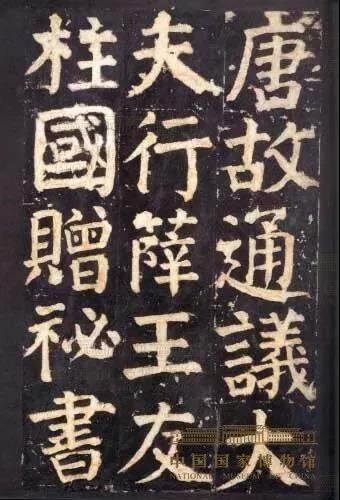 唐故通議大
夫行薛王友
柱國贈祕書
中国国家博物馆
NATIONAL MUSEUM OF CHINA